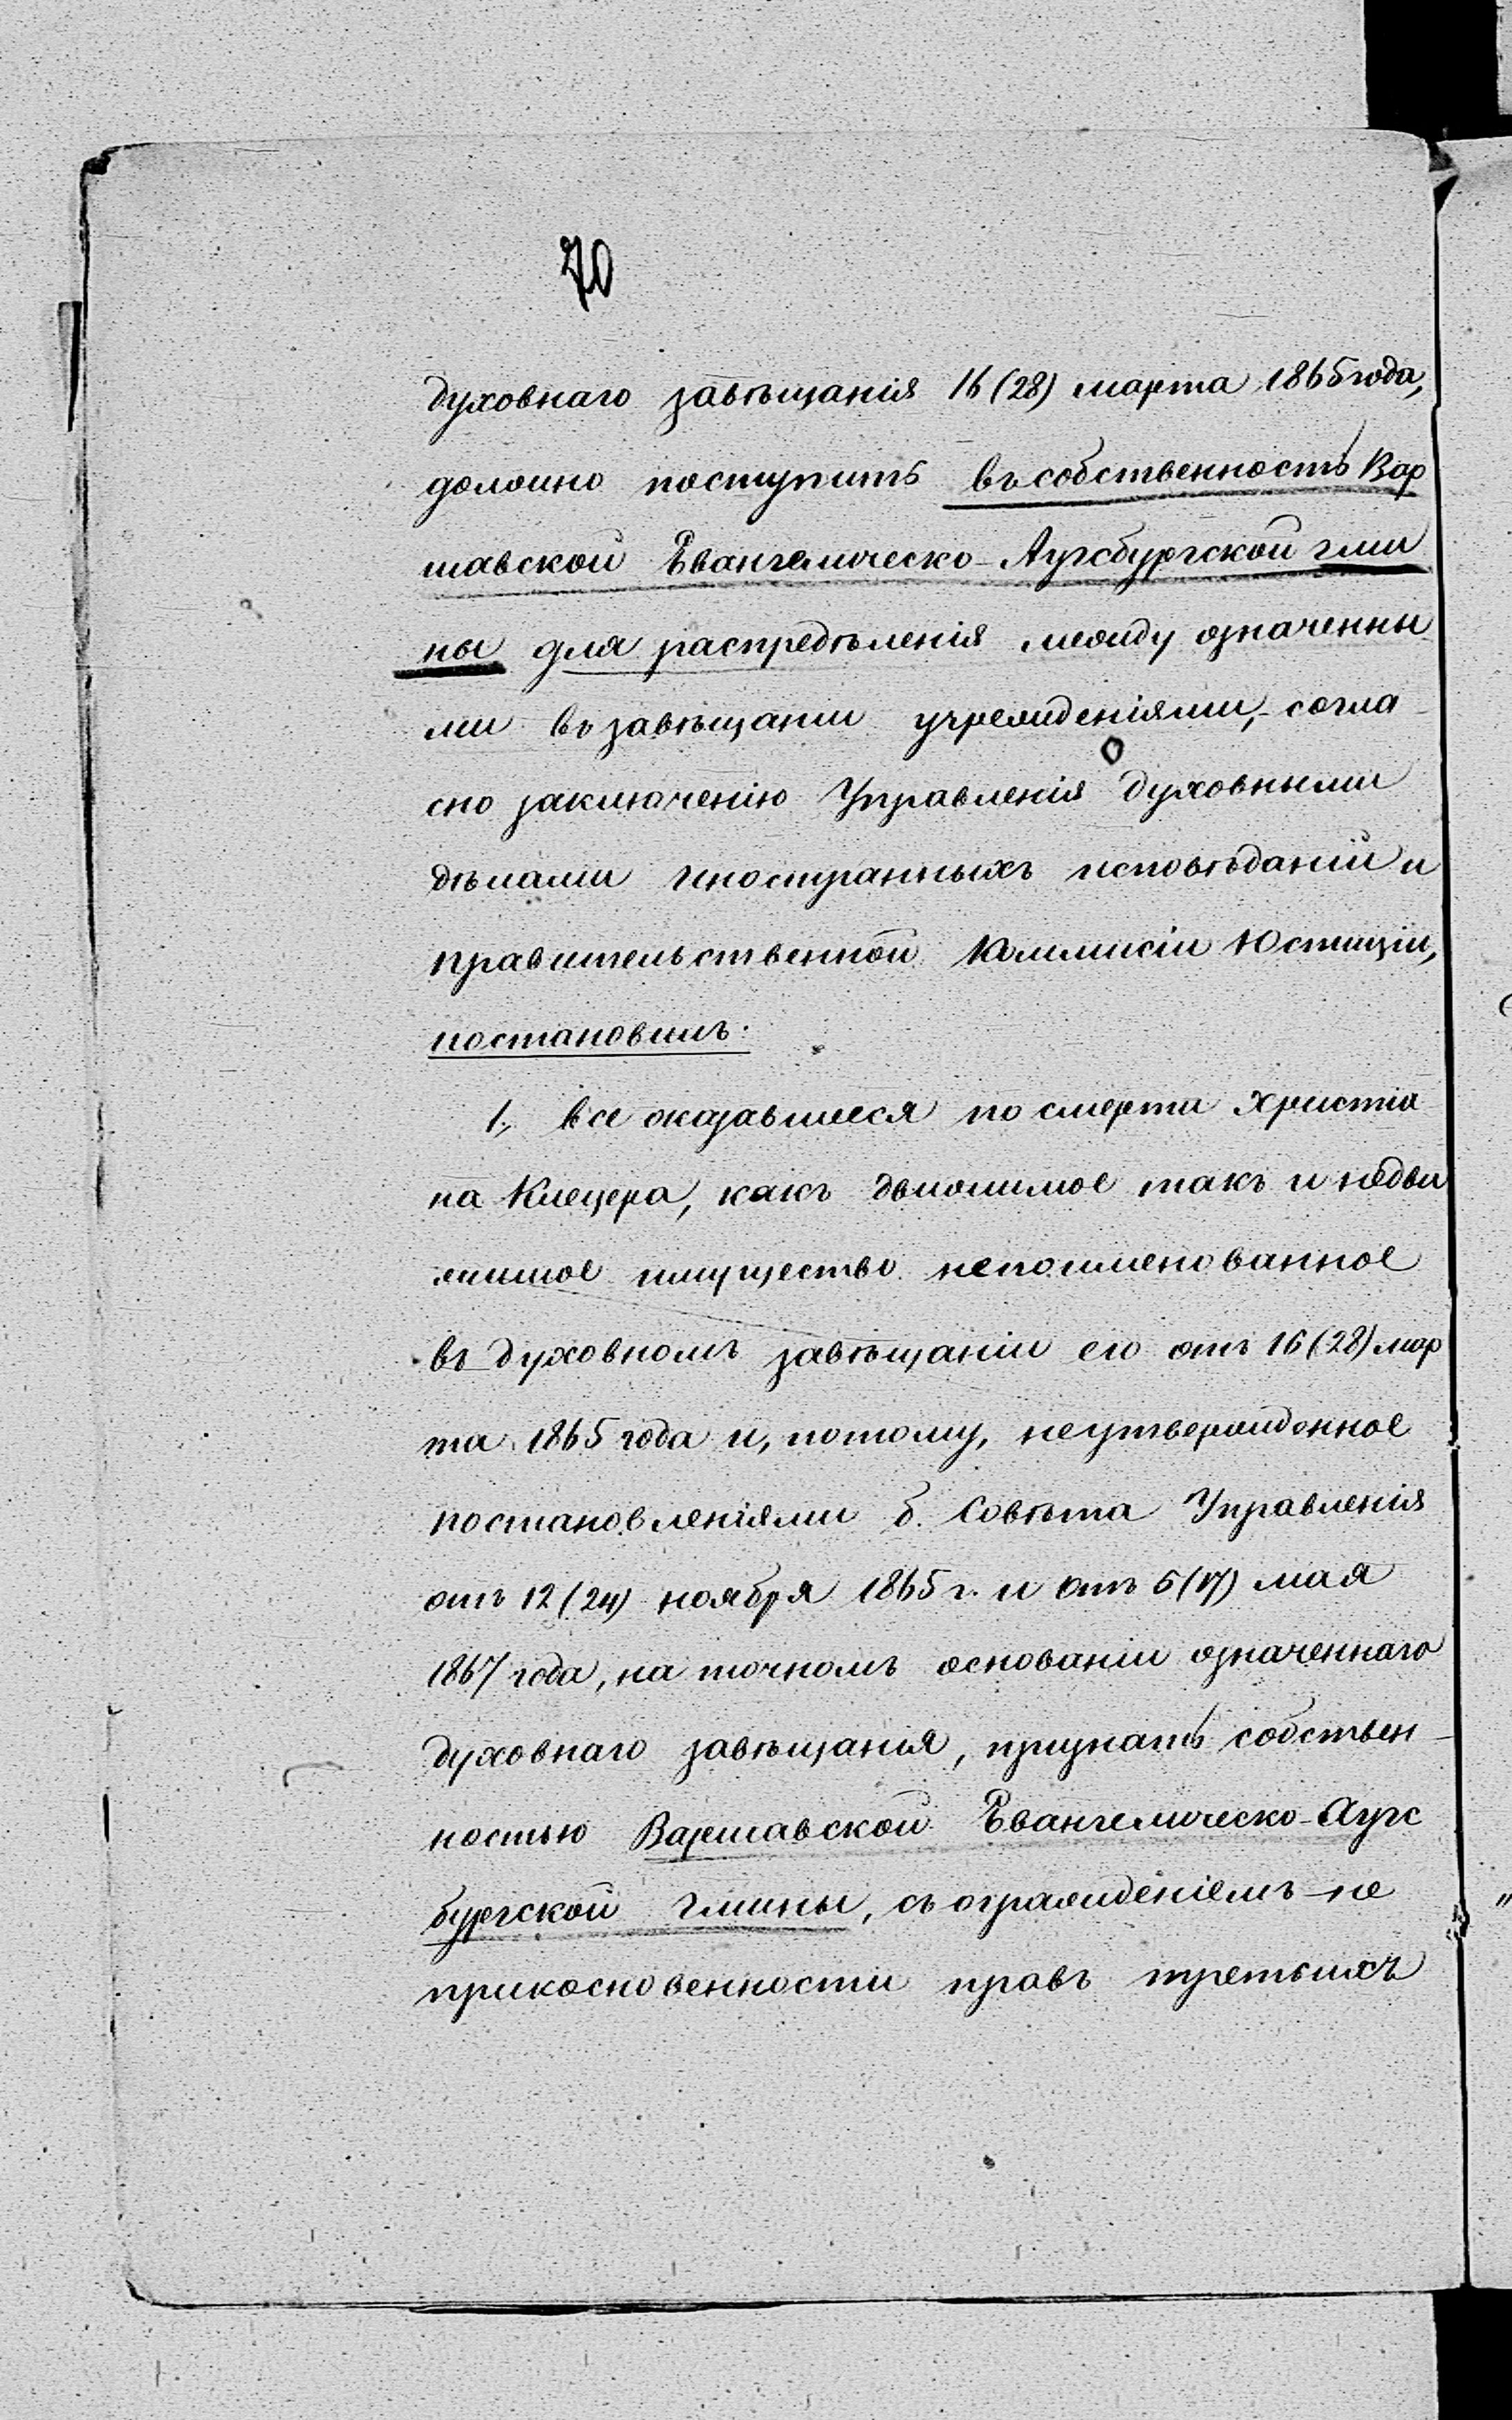 70
духовнаго завѣщанія 16 (28) марта 1865 года,
должно поступить въ собственность Вар
шавской Евангелическо-Аугсбургской гми
ны для распредѣленія между означенны
ми въ завѣщаніи учрежденіями, согла
сно заключенію Управленія духовными
дѣлами иностранныхъ исповѣданій и
правительственной Коммисіи Юстиціи,
постановилъ:
1, все оказавшееся по смерти Христіа
на Клецера, какъ движимое такъ и недви
жимое имущество непоименованное
въ духовномъ завѣщаніи его отъ 16 (28) мар
та 1865 года и, потому, неутвержденное
постановленіями б. Совѣта Управленія
отъ 12 (24) ноября 1865 г. и отъ 5 (17) мая
1867 года, на точномъ основаніи означеннаго
духовнаго завѣщанія, признать собствен-
ностью Варшавской Евангелическо-Аугс
бургской гмины, съ огражденіемъ не
прикосновенности правъ третьихъ